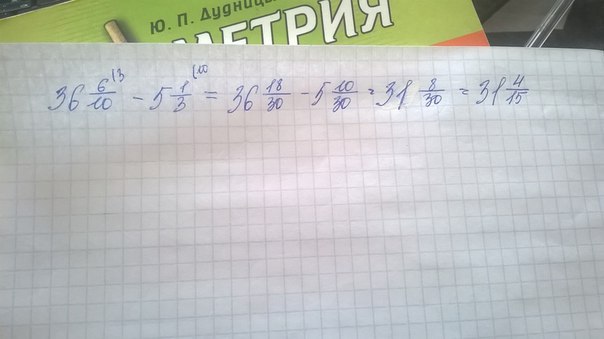 Ю. П. Дудницы
МЕТРИЯ
36 6/10 (3 - 5 1/3 (10 = 36 18/30 - 5 10/30 = 31 8/30 = 31 4/15